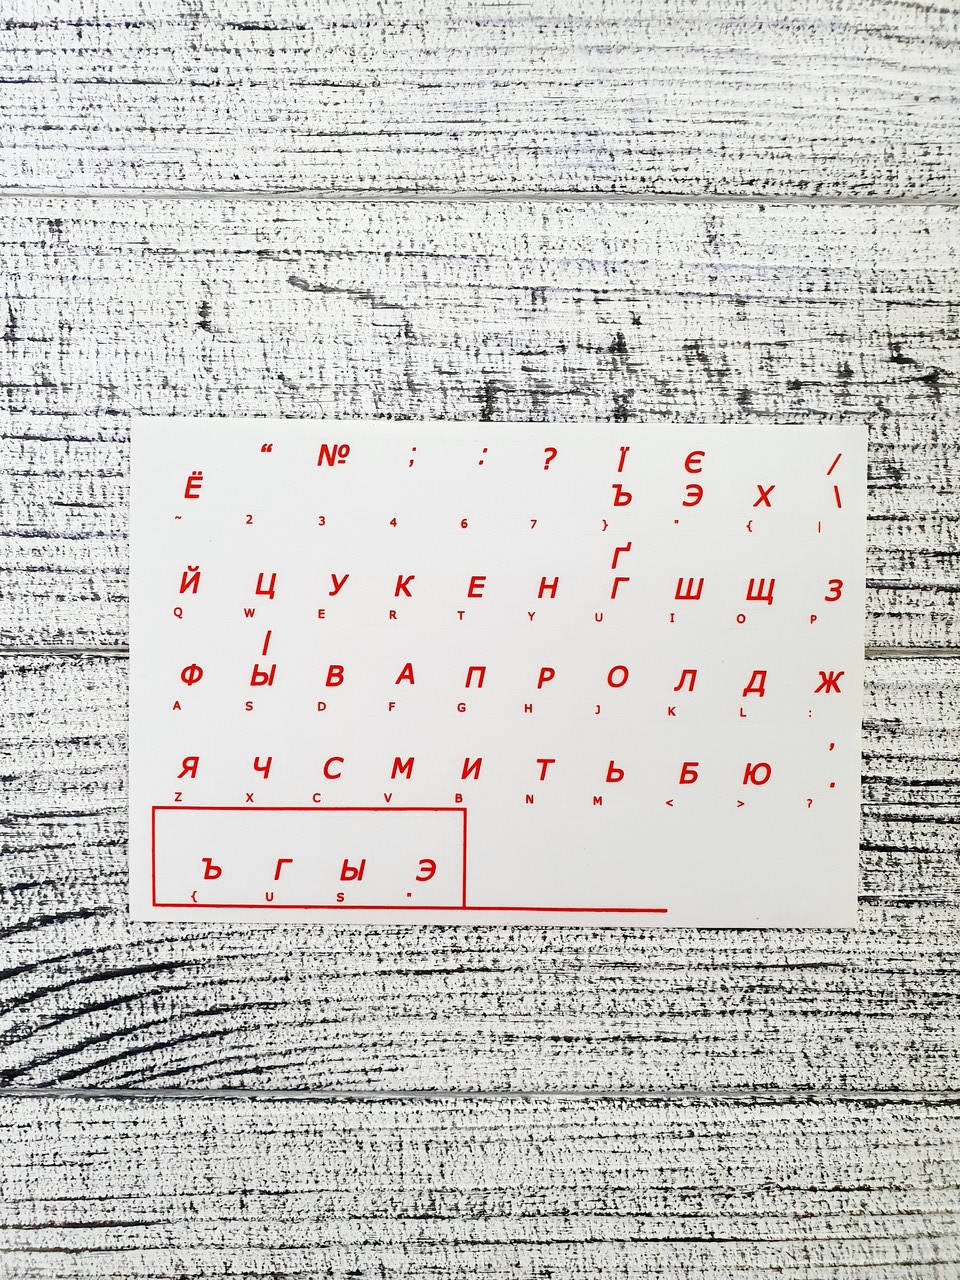 “ № ; : ? Ї Є /
Ё Ъ Э Х \
~ 2 3 4 6 7 } " { |
Ґ
Й Ц У К Е Н Г Ш Щ З
Q W E R T Y U I O P
І
Ф Ы В А П Р О Л Д Ж
A S D F G H J K L :
,
Я Ч С М И Т Ь Б Ю .
Z X C V B N M < > ?
Ъ Г Ы Э
{ U S "